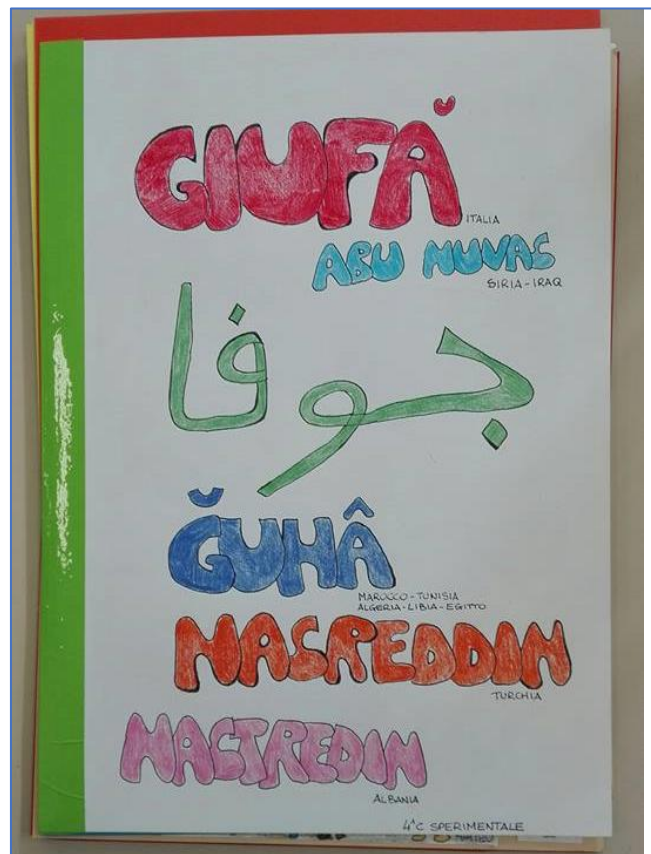 GIUFĂ
ITALIA
ABU NUVAS
SIRIA - IRAQ
جوفا
ĞUHÂ
MAROCCO - TUNISIA
ALGERIA - LIBIA - EGITTO
NASREDDIN
TURCHIA
NASTREDIN
ALBANIA
4^C SPERIMENTALE